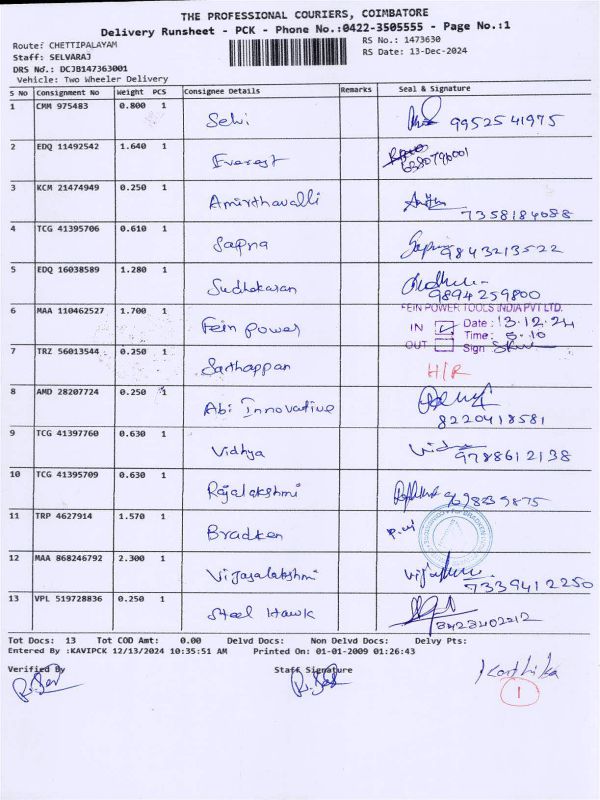 THE PROFESSIONAL COURIERS, COIMBATORE
Delivery Runsheet - PCK - Phone No.:0422-3505555 - Page No.:1
Route: CHETTIPALAYAM
RS No.: 1473630
Staff: SELVARAJ
RS Date: 13-Dec-2024
DRS No.: DCJB147363001
Vehicle: Two Wheeler Delivery
S No Consignment No Weight PCS Consignee Details Remarks Seal & Signature
1 CMM 975483 0.800 1 Selvi 9952541975
2 EDQ 11492542 1.640 1 Everest 6380796001
3 KCM 21474949 0.250 1 Amirthavalli 7358184088
4 TCG 41395706 0.610 1 Sapna Sapna 9843213522
5 EDQ 16038589 1.280 1 Sudhakaran 9894259800
6 MAA 110462527 1.700 1 Fein power FEIN POWER TOOLS INDIA PVT LTD.
IN Date: 13.12.24
Time: 5.10
OUT Sign
7 TRZ 56013544 0.250 1 Sathappan H/R
8 AMD 28207724 0.250 1 Abi Innovative 8220418581
9 TCG 41397760 0.630 1 Vidhya 9788612138
10 TCG 41395709 0.630 1 Rajalakshmi
11 TRP 4627914 1.570 1 Bradken
12 MAA 868246792 2.300 1 Vijayalakshmi 7339412250
13 VPL 519728836 0.250 1 Steel Hawk
Tot Docs: 13 Tot COD Amt: 0.00 Delvd Docs: Non Delvd Docs: Delvy Pts:
Entered By :KAVIPCK 12/13/2024 10:35:51 AM Printed On: 01-01-2009 01:26:43
Verified By Staff Signature Karthika
1